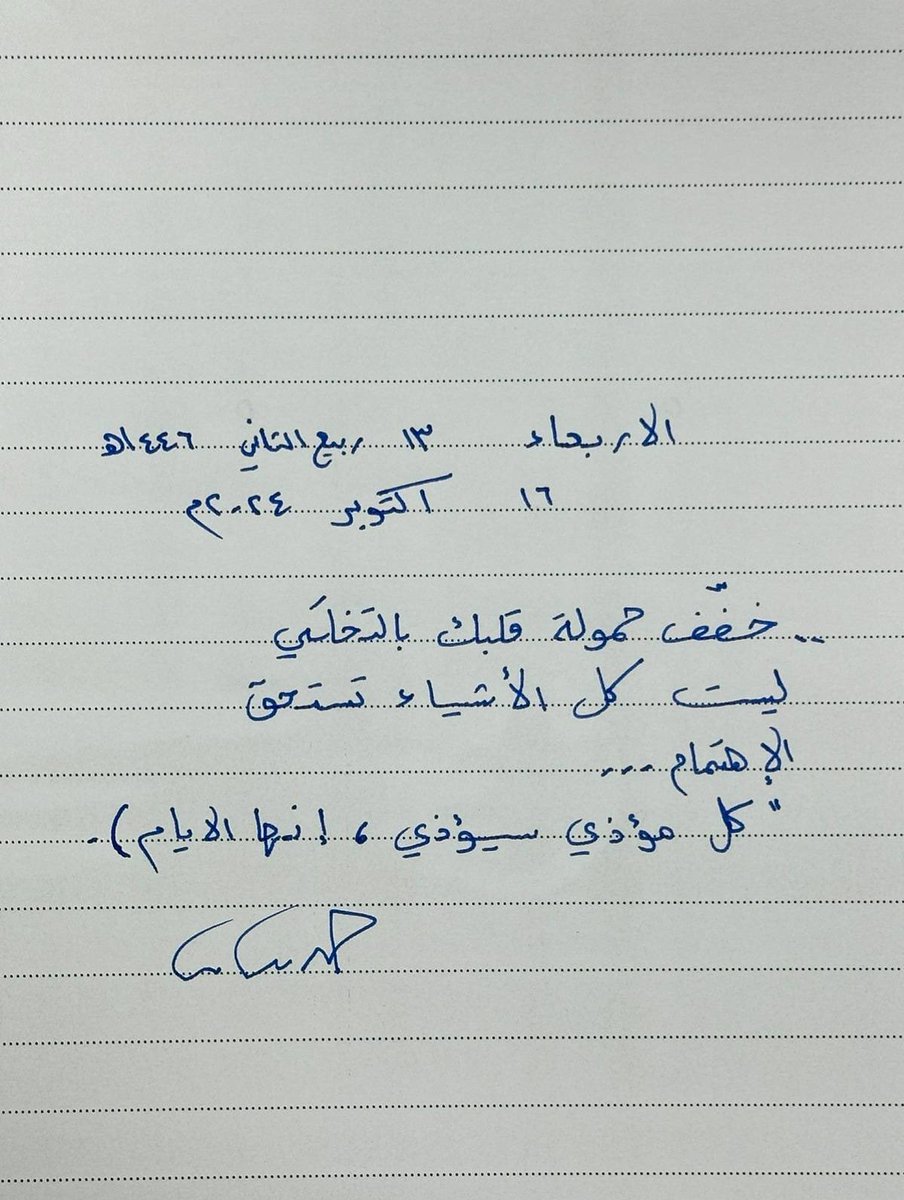 الاربعاء ١٣ ربيع الثاني ١٤٤٦هـ
١٦ اكتوبر ٢٠٢٤م
.. خفّف حمولة قلبك بالتخلّي
ليست كل الأشياء تستحق
الإهتمام ...
"كل مؤذي سيؤذي ، إنها الايام).